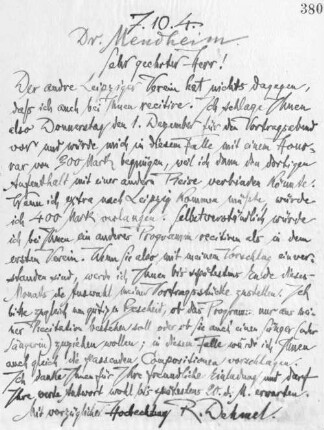 380
7.10.4.
Dr. Mendheim.
Sehr geehrter Herr!
Der andre Leipziger Verein hat nichts dagegen,
daß ich auch bei Ihnen recitire. Ich schlage Ihnen
also Donnerstag den 1. Dezember für den Vortragsabend
vor und würde mich in diesem Falle mit einem Hono-
rar von 300 Mark begnügen, weil ich dann den dortigen
Aufenthalt mit einer andern Reise verbinden könnte.
Wenn ich extra nach Leipzig kommen müßte, würde
ich 400 Mark verlangen. Selbstverständlich würde
ich bei Ihnen ein anderes Programm recitiren als in dem
ersten Verein. Wenn Sie also mit meinem Vorschlag einver-
standen sind, werde ich Ihnen bis spätestens Ende dieses
Monats die Auswahl meiner Vortragsstücke zustellen. Ich
bitte zugleich um gütigen Bescheid, ob das Programm nur aus mei-
ner Recitation bestehen soll oder ob Sie auch einen Sänger (oder
Sängerin) zuziehen wollen; in diesem Falle würde ich Ihnen
auch gleich die passenden Compositionen vorschlagen.
Ich danke Ihnen für Ihre freundliche Einladung und darf
Ihre werte Antwort wohl bis spätestens d. M. erwarten.
Mit vorzüglicher Hochachtung R. Dehmel.